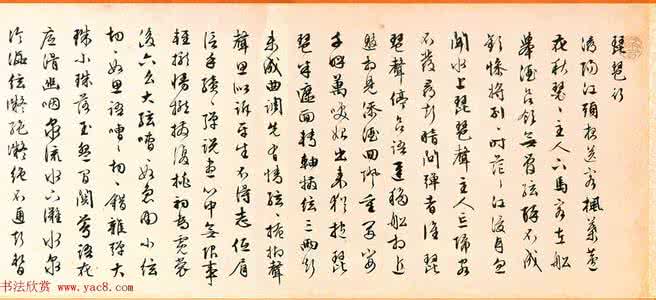 琵琶行
潯陽江頭夜送客楓葉荻
花秋瑟〻主人下馬客在船
舉酒欲飲無管絃醉不成
歡慘將別〻時茫〻江浸月忽
聞水上琵琶聲主人忘歸客
不發尋聲暗問彈者誰琵
琶聲停欲語遲移船相近
邀相見添酒回燈重開宴
千呼萬喚始出來猶抱琵
琶半遮面轉軸撥絃三兩聲
未成曲調先有情絃〻掩抑聲
聲思似訴平生不得志低眉
信手續〻彈說盡心中無限事
輕攏慢撚抹復挑初為霓裳
後六幺大絃嘈〻如急雨小絃
切〻如私語嘈〻切〻錯雜彈大
珠小珠落玉盤間關鶯語花
底滑幽咽泉流水下灘水泉
冷澀絃凝絕凝絕不通聲暫
书法欣赏 www.yac8.com